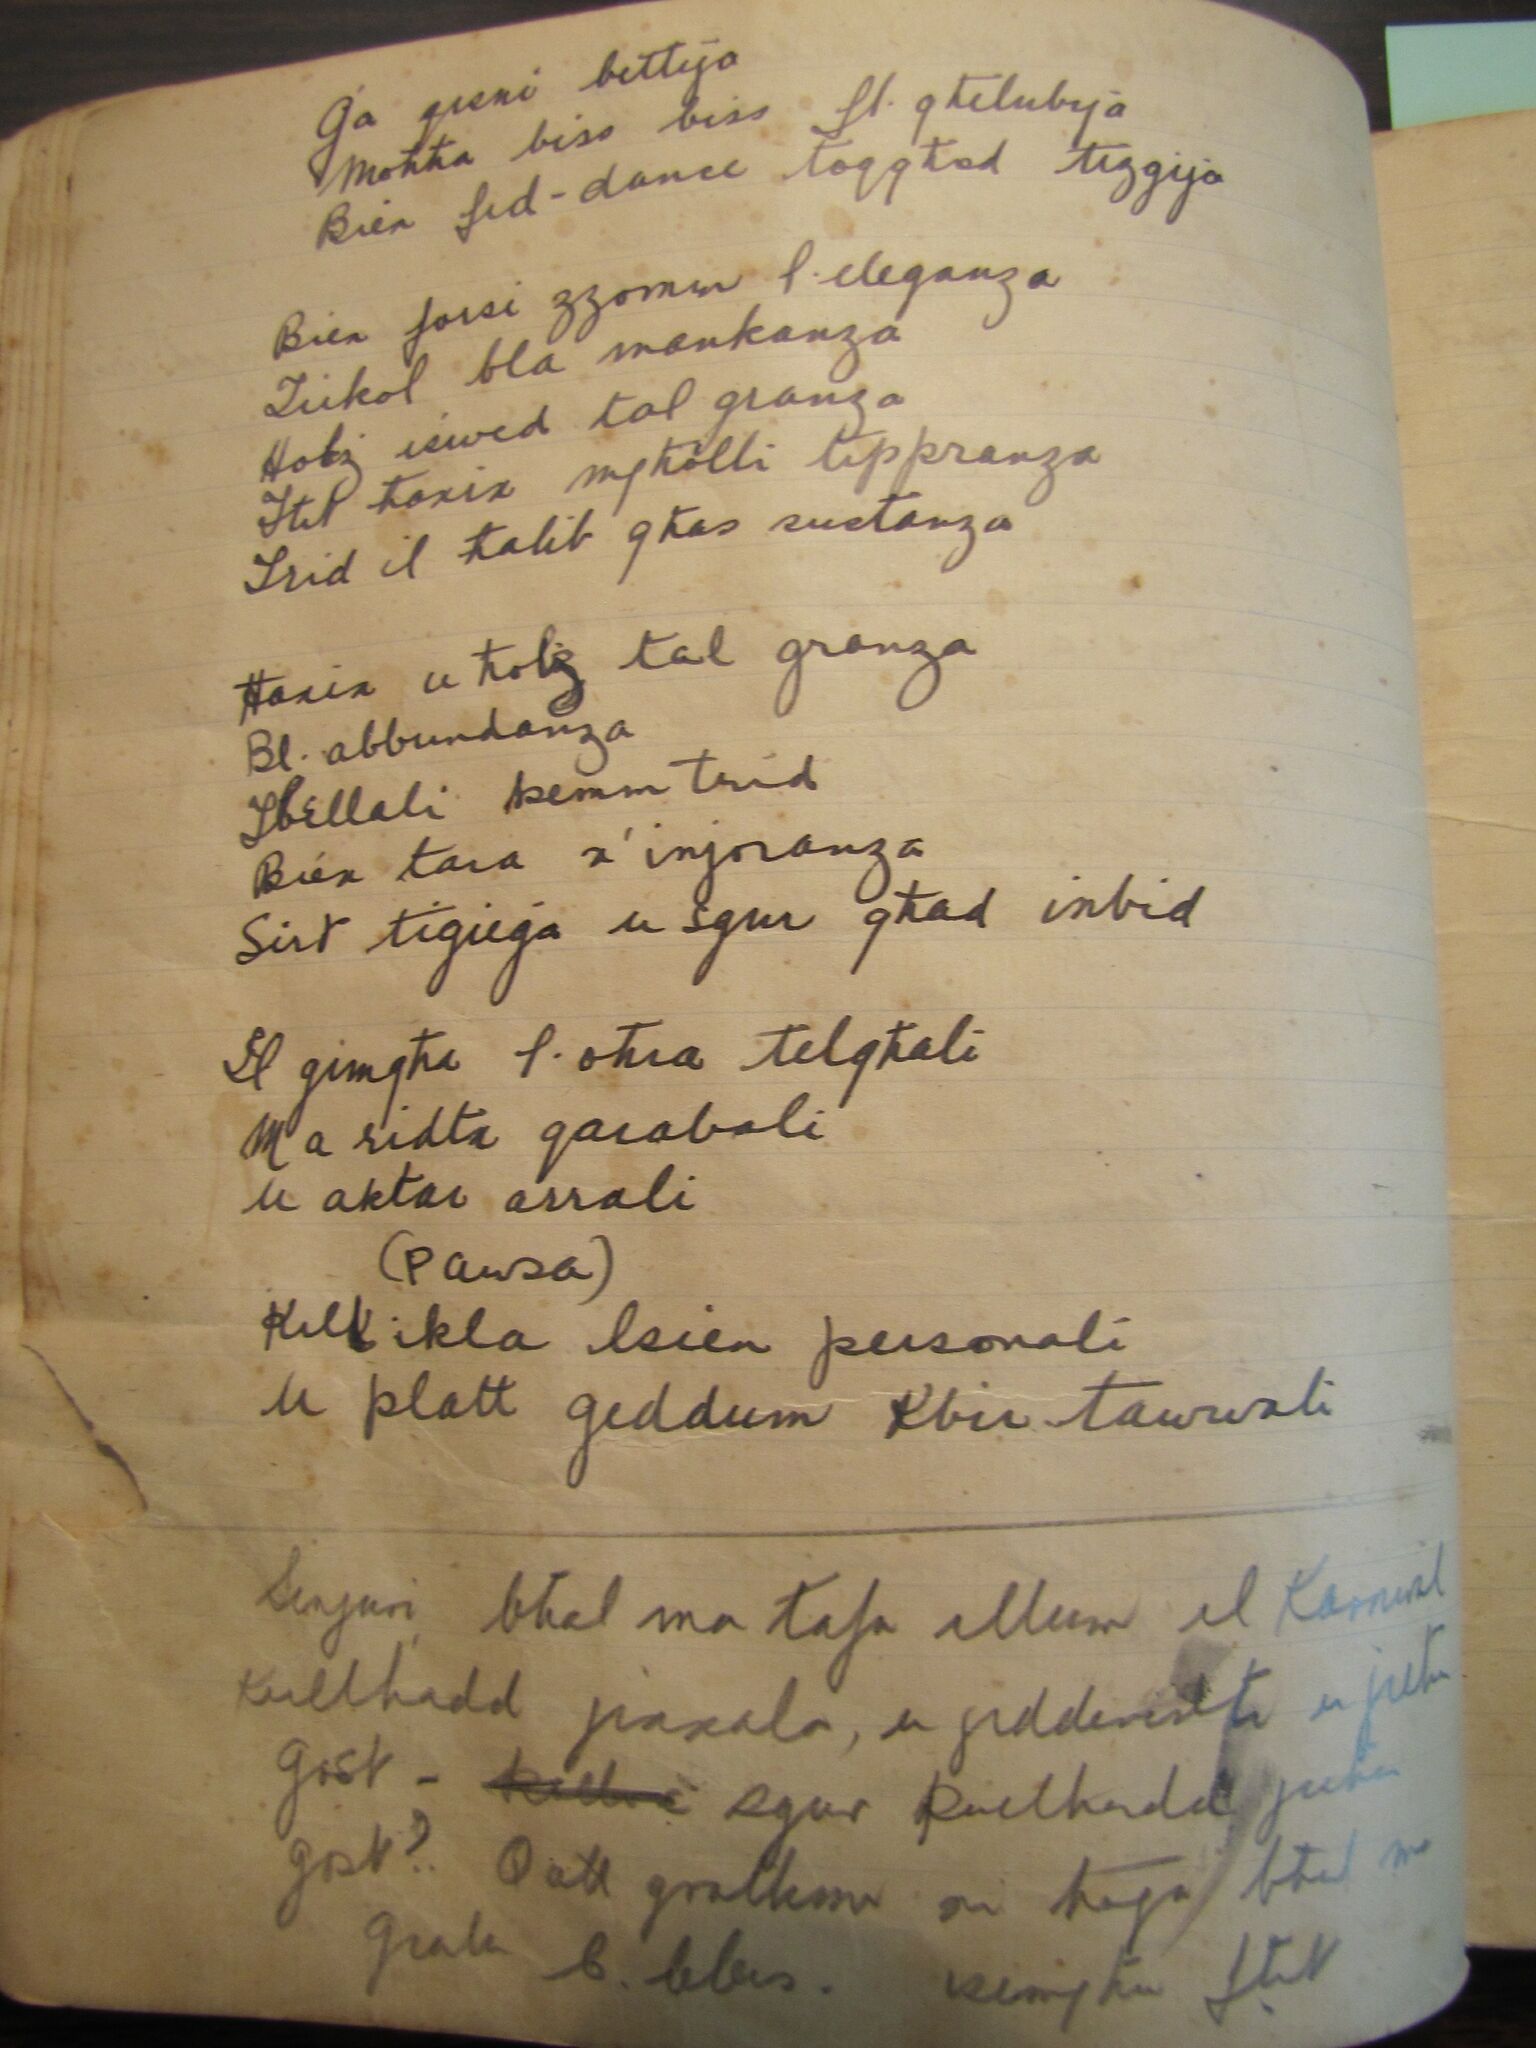 Ġa ġismi bettija
Moħħa biss biss fl. għelubija
Biex fid-dance toqgħod tiżgija
Biex forsi żżomm l. eleganza
Tiekol bla mankanza
Ħobż iswed tal granza
Itel ħaxix mgħolli tippranza
Irid il ħalib għas sustanza
Ħaxix u ħobż tal granza
Bl. abbundanza
Ibellali kemm trid
Biex tara x' injoranza
Sirt tiġieġa u sgur għad inbid
Il ġimgħa l. oħra telgħali
Ma ridtx qarabali
u aktar arrali
(Pawsa)
Kell. ikla lsien personali
u platt geddum kbir tawwali
Sinjuri, bħal ma tafu illum il Karnival
Kullħadd jixxala, u jiddeverti u jieħu
gost - sgur kullħadd jieħu
gost? Qatt gratkom xi ħaġa bħal ma
grali lili. isimgħu ftit